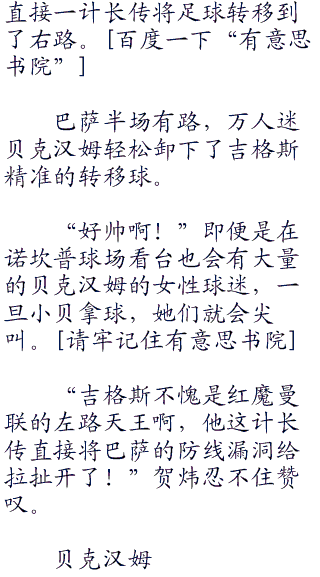 直接一计长传将足球转移到
了右路。[百度一下“有意思
书院”]
巴萨半场有路，万人迷
贝克汉姆轻松卸下了吉格斯
精准的转移球。
“好帅啊！”即便是在
诺坎普球场看台也会有大量
的贝克汉姆的女性球迷，一
旦小贝拿球，她们就会尖
叫。[请牢记住有意思书院]
“吉格斯不愧是红魔曼
联的左路天王啊，他这计长
传直接将巴萨的防线漏洞给
拉扯开了！”贺炜忍不住赞
叹。
贝克汉姆